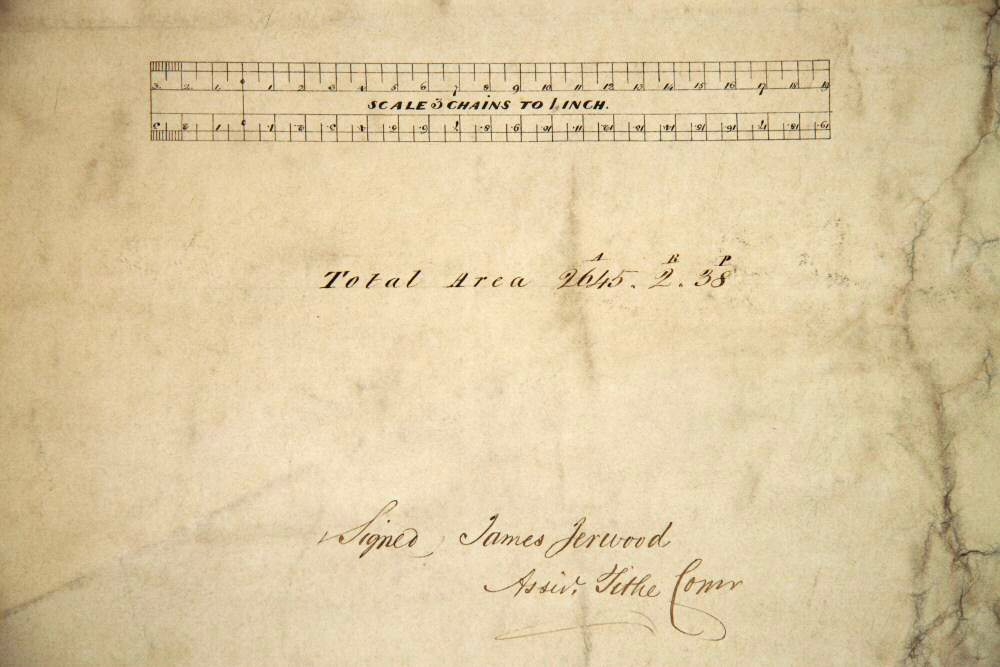 3. 2. 1. 0 1 2 3 4 5 6 7 8 9 10 11 12 13 14 15 16 17 18 19
SCALE 3 CHAINS TO 1 INCH.
3 2 1 0 1. 2. 3. 4. 5. 6. 7. 8. 9. 10. 11. 12. 13. 14. 15. 16. 17. 18. 19.
A R P
Total Area 2645. 2. 38
Signed James Jerwood
Assist. Tithe Comr